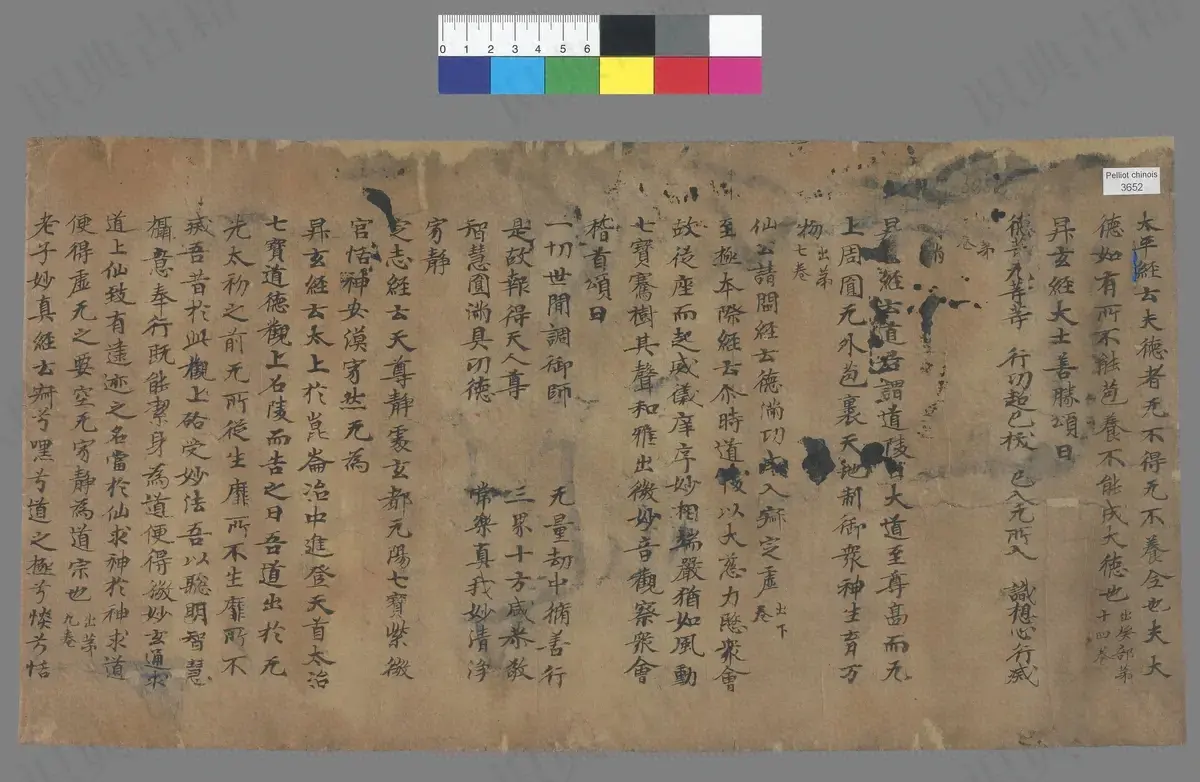 Pelliot chinois
3652
0 1 2 3 4 5 6
太平經云夫德者无不得无不養今也夫大
德如有所不能苞養不能成大德也出癸部苐十四卷
昇玄經大士善勝頌曰
德 无等等 行功超已 已入元所入 識想心行滅
苐 卷
昇 經云道 謂道陵曰大道至尊高而元
上周圓元外苞裹天地制御衆神生育万
物出苐七卷
仙公請問經云德滿功成入 定虛出下卷
至極本際經云尒時道陵以大慈力愍衆會
故從座而起威儀庠序妙相端嚴猶如風動
七寶騫樹其聲和雅出微妙音觀察衆會
稽首頌曰
一切世間調御師 无量劫中脩善行
是故報得天人尊 三界十方咸 教
智慧圓滿具功德 常樂真我妙清淨
寂靜
定志經云天尊靜處玄都元陽七寶紫微
宫恬神安漠寂然元為
昇玄經云太上於崑崙治中進登天首太治
七寶道德觀上名陵而告之曰吾道出於元
光太初之前元所從生靡所不生靡所不
威吾昔於此觀上 受妙法吾以聦明智慧
攝意奉行既能潔身為道便得微妙玄通求
道上仙致有遠迹之名當於仙求神於神求道
便得虛元之要空元寂靜為道宗也出苐九卷
老子妙真經云 兮嘿兮道之極兮 兮恬